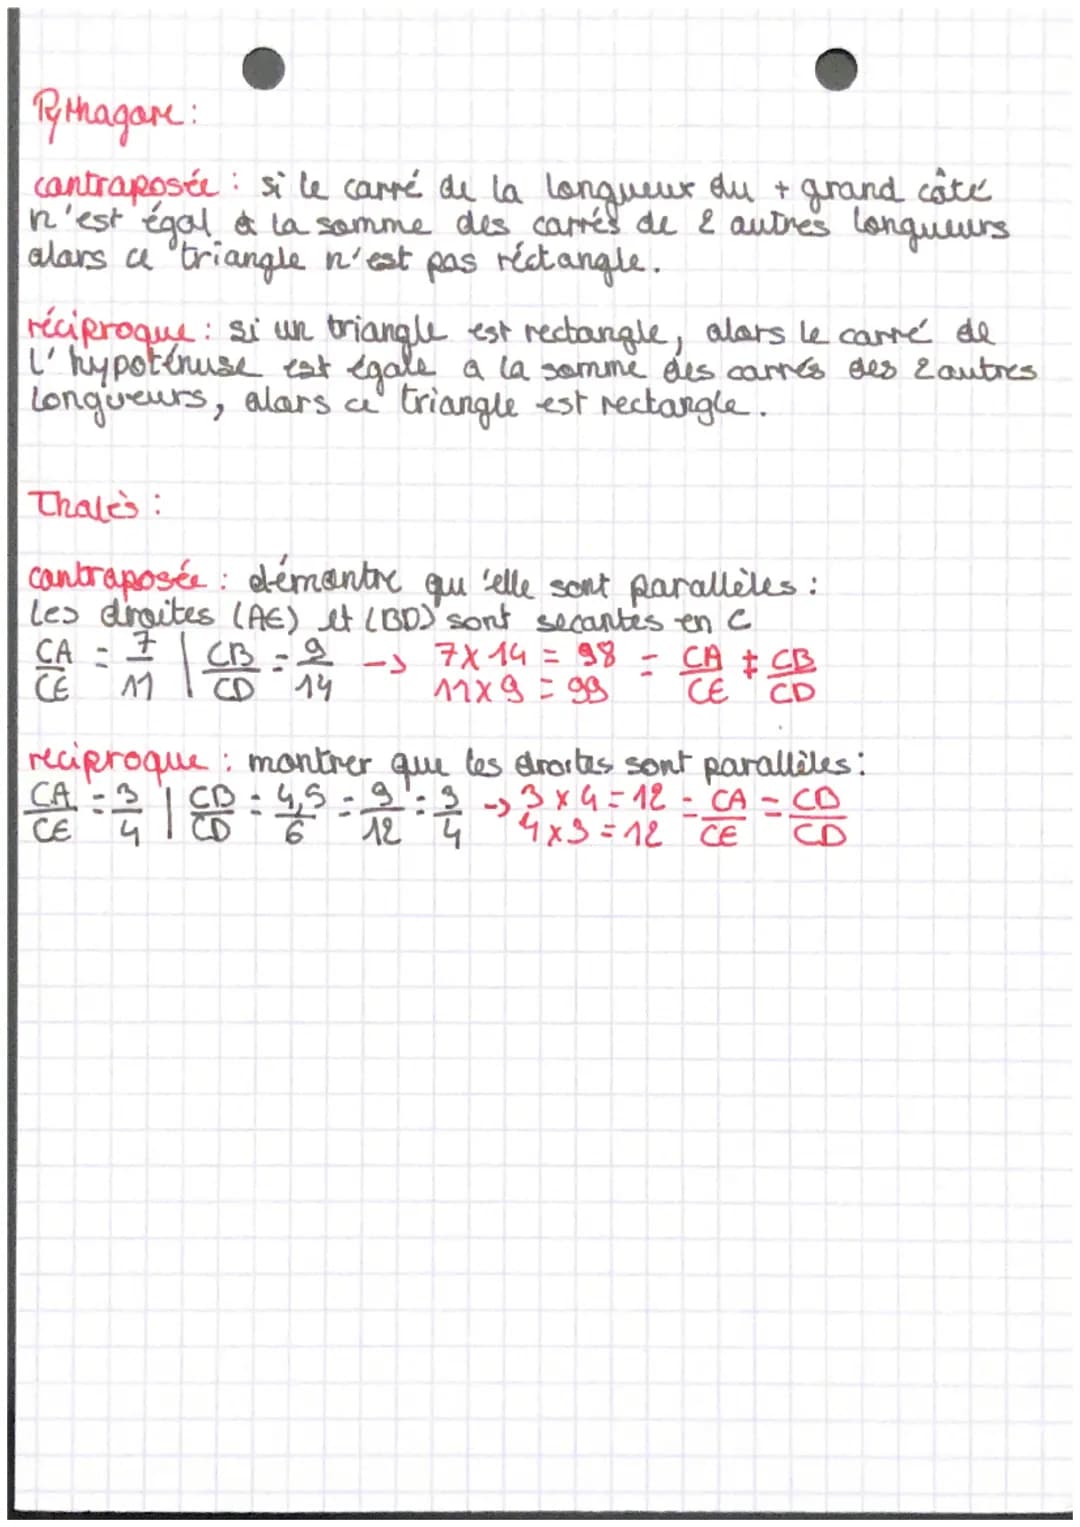 Pythagore:
contraposée : si le carré de la longueur du + grand côté
n'est égal à la somme des carrés de 2 autres longueurs
alors ce triangle n'est pas réctangle.
réciproque : si un triangle est rectangle, alors le carré de
l'hypoténuse est égale a la somme des carrés des 2 autres
longueurs, alors ce triangle est rectangle.
Thalès :
contraposée : démontre qu'elle sont parallèles :
Les droites (AE) et (BD) sont secantes en C
CA/CE = 7/11 | CB/CD = 9/14 -> 7x14 = 98 - CA/CE ≠ CB/CD
11x9 = 99
reciproque : montrer que les droites sont parallèles :
CA/CE = 3/4 | CB/CD = 4,5/6 = 9/12 = 3/4 -> 3x4=12 - CA/CE = CD/CD
4x3=12